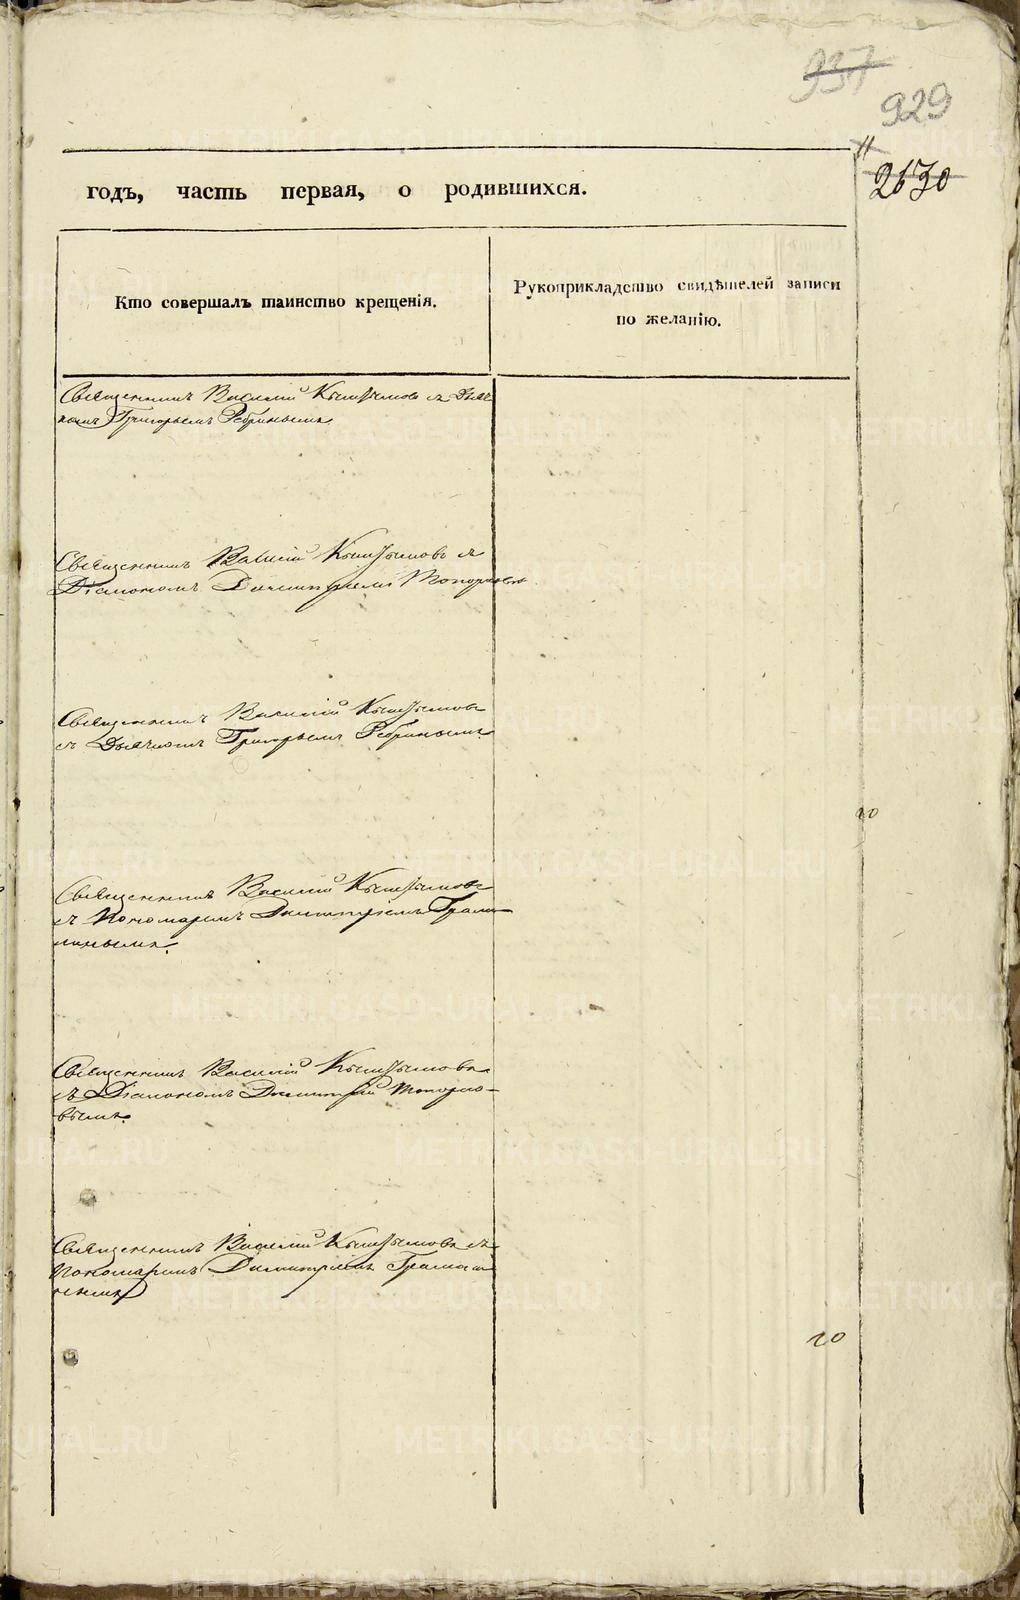 937
929
11
2630
годъ, часть первая, о родившихся.
Кто совершалъ таинство крещенія.
Рукоприкладство свидѣтелей записи
по желанію.
Священникъ Василій Кыштымовъ съ Дьяч
комъ Григорьемъ Ребринымъ
Священникъ Василій Кыштымовъ съ
Діакономъ Димитріемъ
Священникъ Василій Кыштымовъ
съ Дьячкомъ Григорьемъ Ребринымъ
10
Священникъ Василій Кыштымовъ
съ Пономаремъ Димитріемъ
Священникъ Василій Кыштымовъ
съ Діакономъ Димитрій Топорко-
вымъ.
Священникъ Василій Кыштымовъ съ
Пономаремъ Димитріемъ
10
METRIKI.GASO-URAL.RU